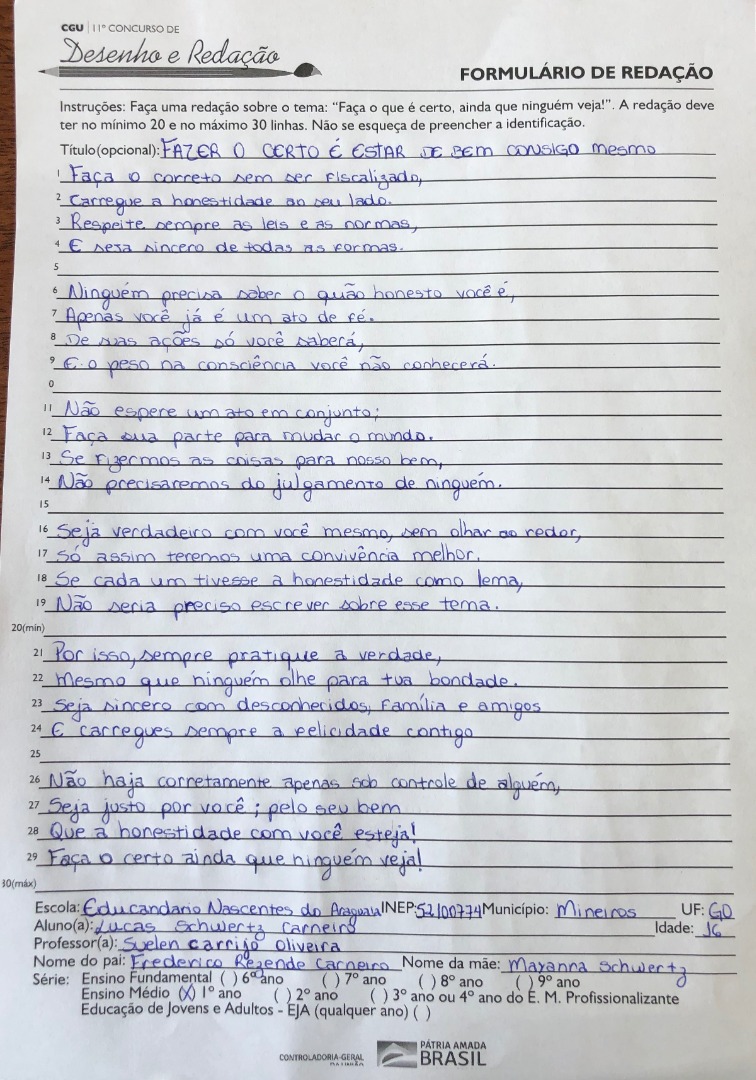 CGU | 11º CONCURSO DE
Desenho e Redação
FORMULÁRIO DE REDAÇÃO
Instruções: Faça uma redação sobre o tema: "Faça o que é certo, ainda que ninguém veja!". A redação deve
ter no mínimo 20 e no máximo 30 linhas. Não se esqueça de preencher a identificação.
Título(opcional): FAZER O CERTO É ESTAR DE BEM CONSIGO mesmo
1 Faça o correto sem ser fiscalizado,
2 Carregue a honestidade ao seu lado.
3 Respeite sempre as leis e as normas,
4 E seja sincero de todas as formas.
5
6 Ninguém precisa saber o quão honesto você é,
7 Apenas você já é um ato de fé.
8 De suas ações só você saberá,
9 E o peso na consciência você não conhecerá.
0
11 Não espere um ato em conjunto;
12 Faça sua parte para mudar o mundo.
13 Se fizermos as coisas para nosso bem,
14 Não precisaremos do julgamento de ninguém.
15
16 Seja verdadeiro com você mesmo, sem olhar ao redor,
17 Só assim teremos uma convivência melhor.
18 Se cada um tivesse a honestidade como lema,
19 Não seria preciso escrever sobre esse tema.
20(min)
21 Por isso, sempre pratique a verdade,
22 Mesmo que ninguém olhe para tua bondade.
23 Seja sincero com desconhecidos, família e amigos
24 E carregues sempre a felicidade contigo
25
26 Não haja corretamente apenas sob controle de alguém,
27 Seja justo por você; pelo seu bem
28 Que a honestidade com você esteja!
29 Faça o certo ainda que ninguém veja!
30(máx)
Escola: Educandario Nascentes do Araguaia INEP: 52100774 Município: Mineiros UF: GO
Aluno(a): Lucas Schwertz Carneiro Idade: 16
Professor(a): Suelen Carrijo Oliveira
Nome do pai: Frederico Rezende Carneiro Nome da mãe: Mayanna Schwertz
Série: Ensino Fundamental ( ) 6º ano ( ) 7º ano ( ) 8º ano ( ) 9º ano
Ensino Médio (X) 1º ano ( ) 2º ano ( ) 3º ano ou 4º ano do E. M. Profissionalizante
Educação de Jovens e Adultos - EJA (qualquer ano) ( )
CONTROLADORIA-GERAL
DA UNIÃO
PÁTRIA AMADA
BRASIL